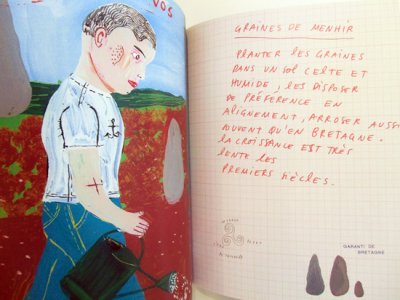 VOS
GRAINES DE MENHIR
PLANTER LES GRAINES
DANS UN SOL CELTE ET
HUMIDE, LES DISPOSER
DE PRÉFÉRENCE EN
ALIGNEMENT, ARROSER AUSSI
SOUVENT QU'EN BRETAGNE.
LA CROISSANCE EST TRÈS
LENTE LES
PREMIERS SIÈCLES.
GARANTI DE
BRETAGNE